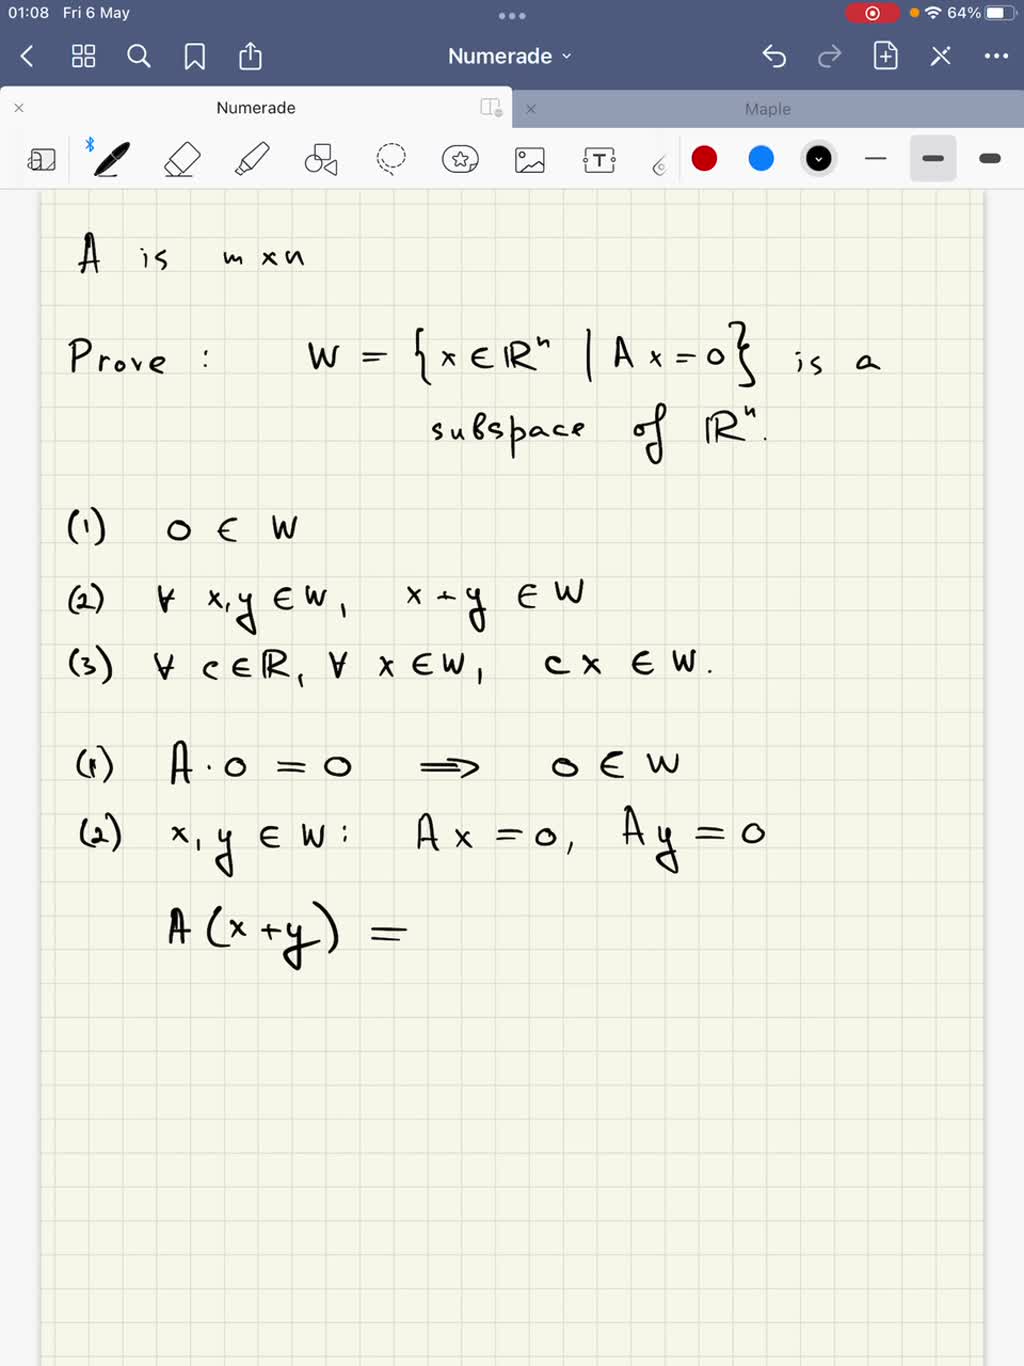 01:08 Fri 6 May 64%
Numerade
Numerade Maple
A is m x n
Prove : W = { x ∈ ℝⁿ | A x = 0 } is a
subspace of ℝⁿ.
(1) 0 ∈ W
(2) ∀ x, y ∈ W, x + y ∈ W
(3) ∀ c ∈ ℝ, ∀ x ∈ W, c x ∈ W.
(1) A · 0 = 0 ⟹ 0 ∈ W
(2) x, y ∈ W : A x = 0, A y = 0
A (x + y) =